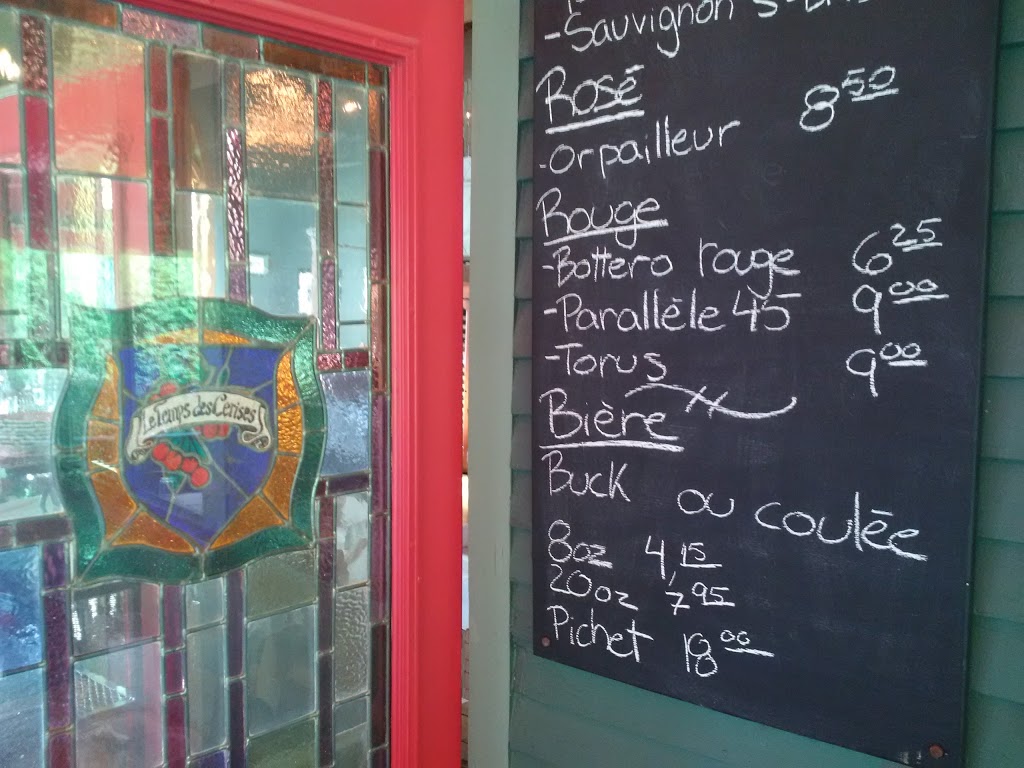 Le Temps des Cerises
-Sauvignon
Rosé
-Orpailleur 8 50
Rouge
-Bottero rouge 6 25
-Parallèle 45 9 00
-Torus 9 00
Bière
Buck ou coulée
8oz 4, 15
20oz 7 95
Pichet 18 00